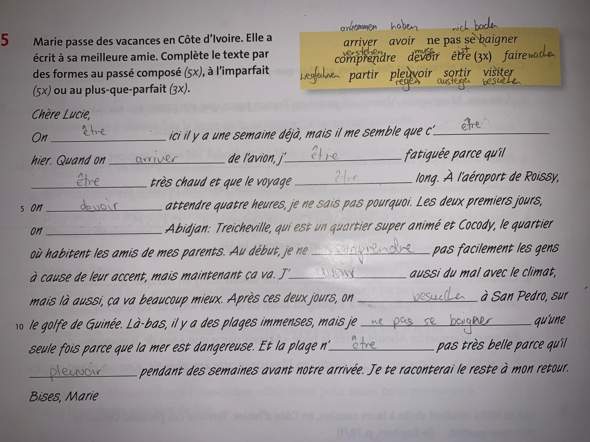 5 Marie passe des vacances en Côte d'Ivoire. Elle a
écrit à sa meilleure amie. Complète le texte par
des formes au passé composé (5x), à l'imparfait
(5x) ou au plus-que-parfait (3x).
ankommen haben sich baden
arriver avoir ne pas se baigner
verstehen muss
comprendre devoir être (3x) faire machen
wegfahren partir pleuvoir sortir visiter
regen aussteigen besuchen
Chère Lucie,
On être ici il y a une semaine déjà, mais il me semble que c' être
hier. Quand on arriver de l'avion, j' être fatiguée parce qu'il
être très chaud et que le voyage être long. À l'aéroport de Roissy,
5 on devoir attendre quatre heures, je ne sais pas pourquoi. Les deux premiers jours,
on Abidjan: Treicheville, qui est un quartier super animé et Cocody, le quartier
où habitent les amis de mes parents. Au début, je ne comprendre pas facilement les gens
à cause de leur accent, mais maintenant ça va. J' aussi du mal avec le climat,
mais là aussi, ça va beaucoup mieux. Après ces deux jours, on besuchen à San Pedro, sur
10 le golfe de Guinée. Là-bas, il y a des plages immenses, mais je ne pas se baigner qu'une
seule fois parce que la mer est dangereuse. Et la plage n' être pas très belle parce qu'il
pleuvoir pendant des semaines avant notre arrivée. Je te raconterai le reste à mon retour.
Bises, Marie